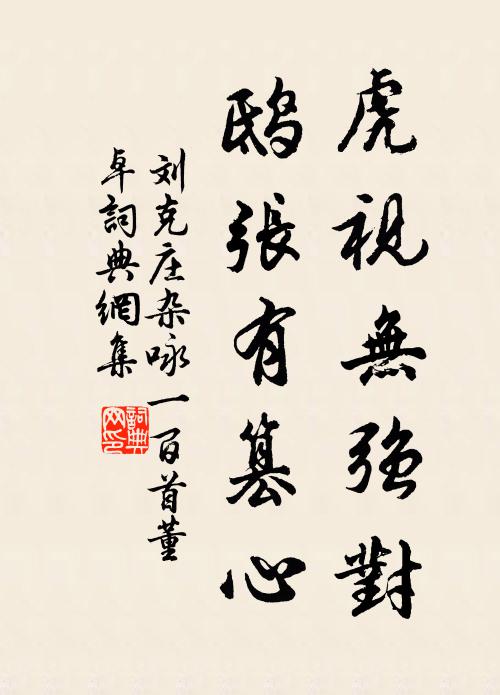 虎視無強對
鴟張有篡心
刘克庄杂咏一百首董
卓詞典網集
詞典
网印